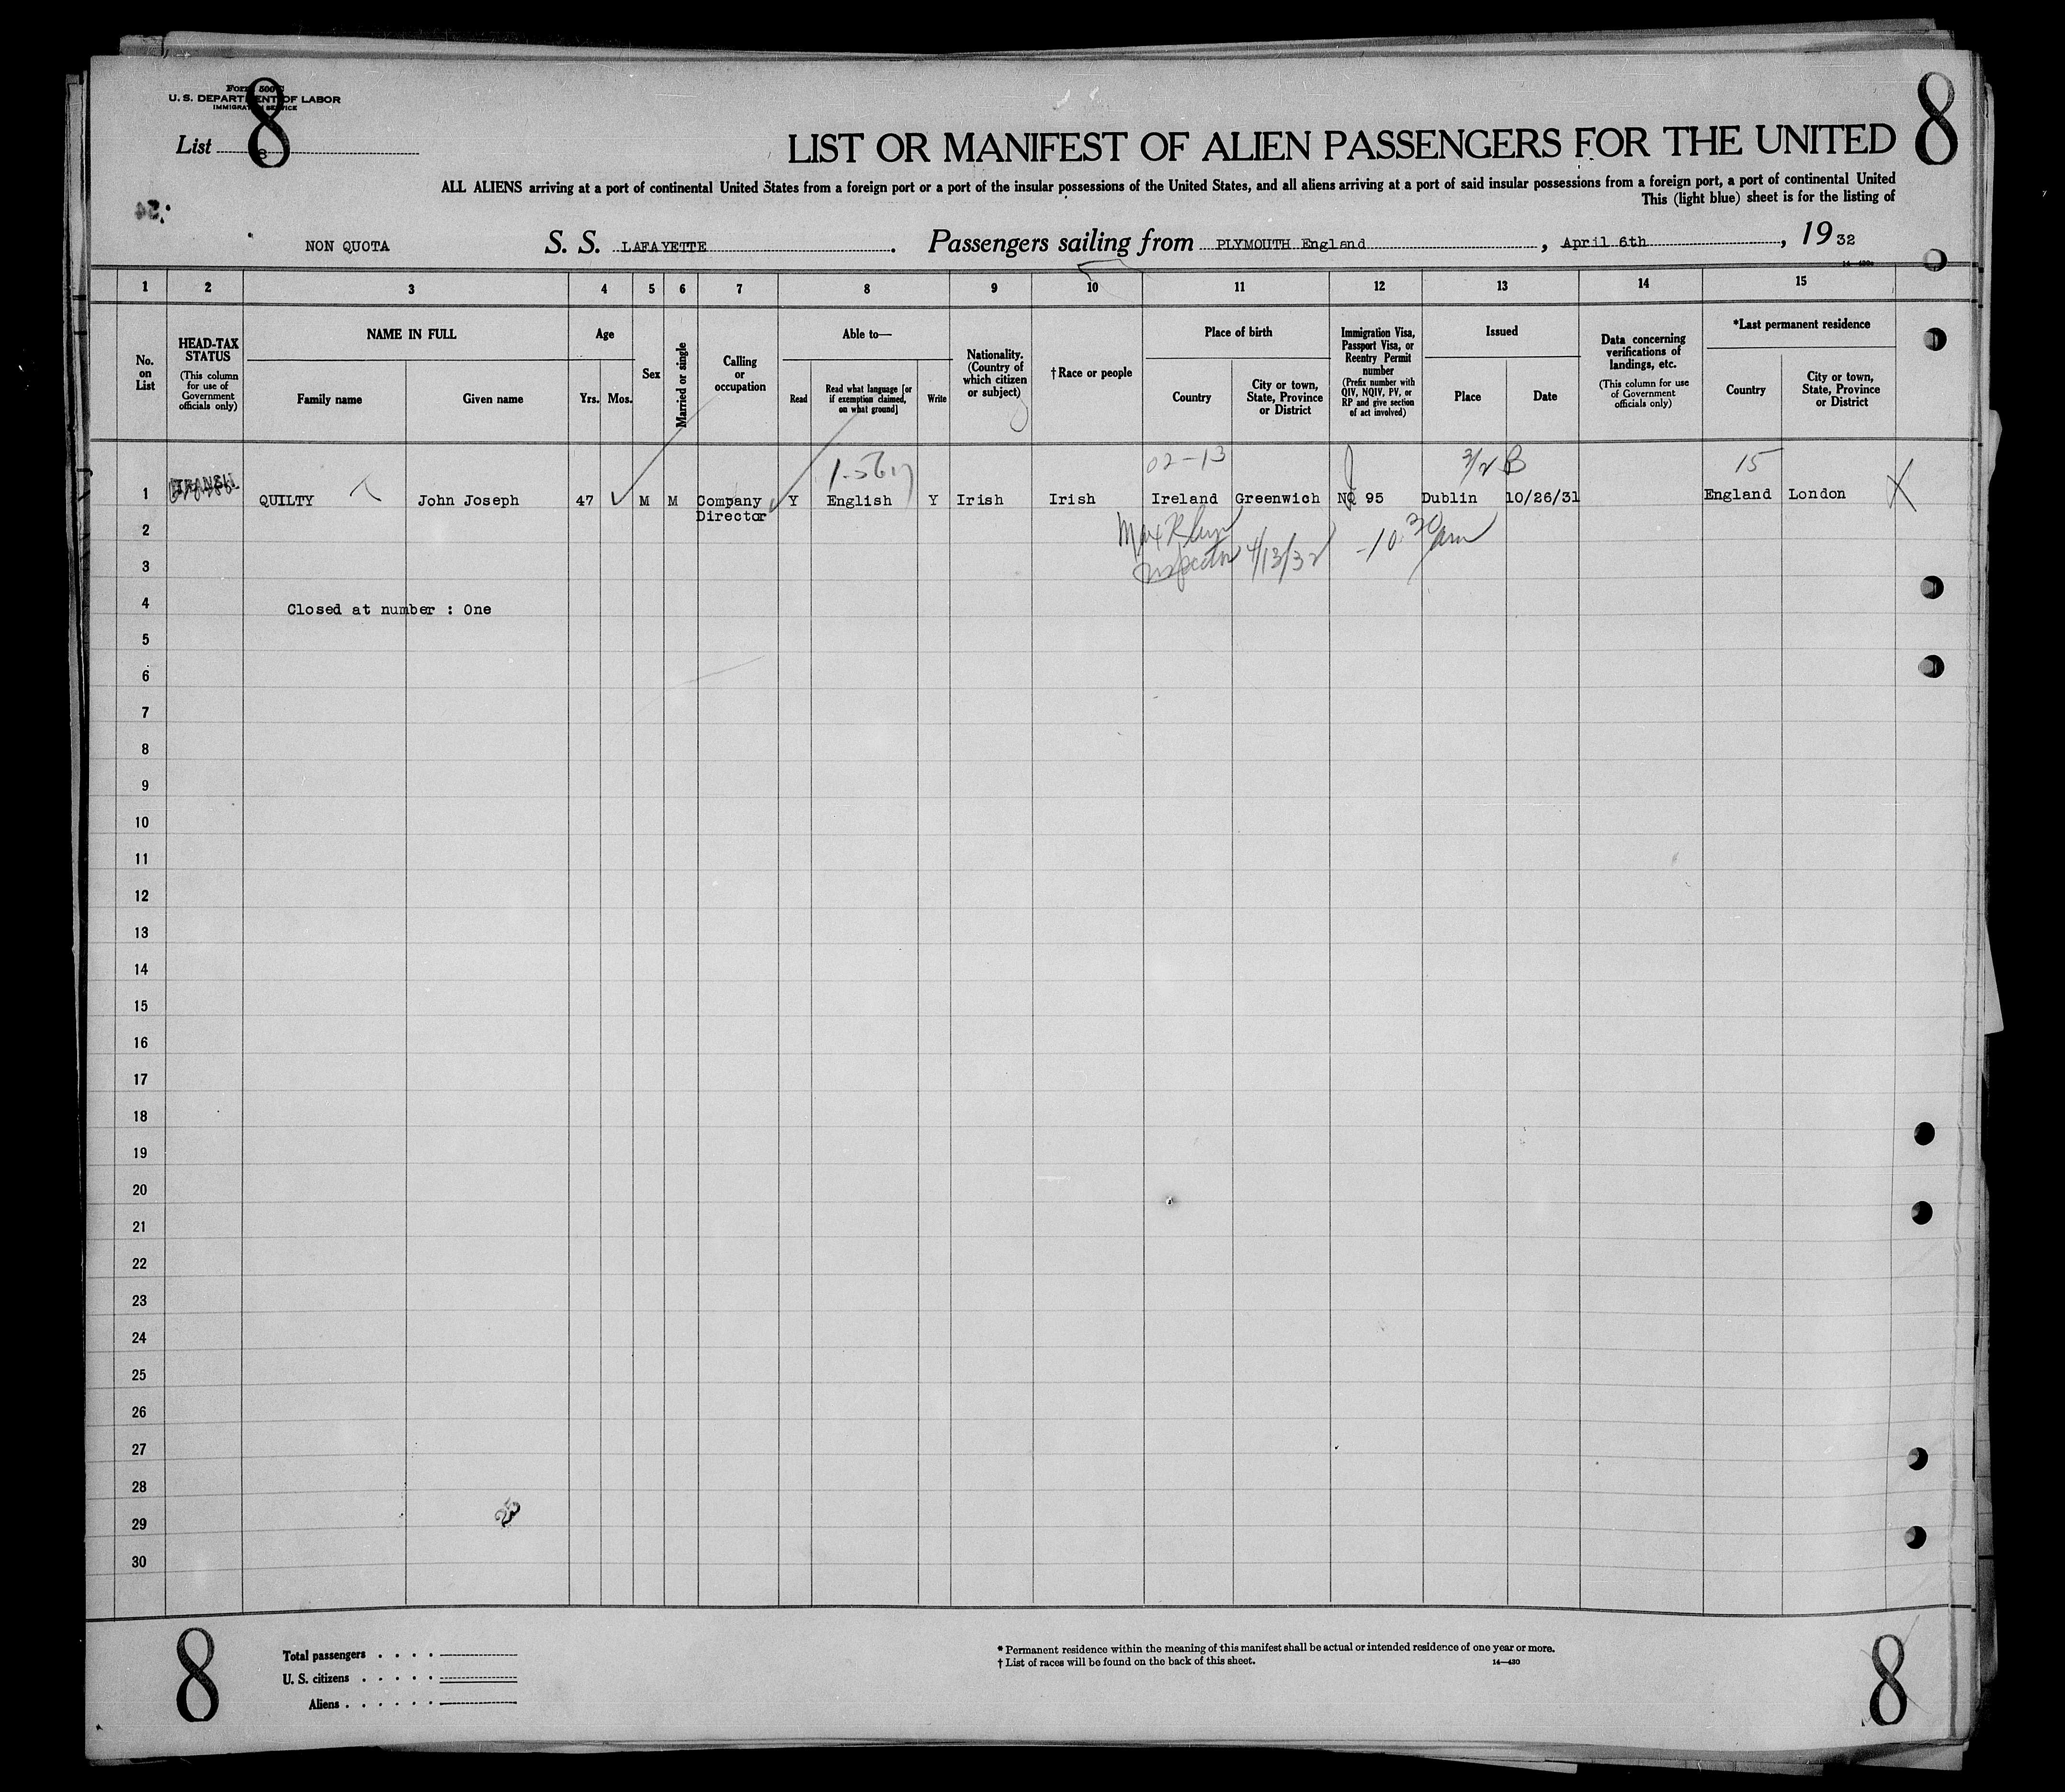 Form 500 C
U. S. DEPARTMENT OF LABOR
IMMIGRATION SERVICE
List 8
8
8
LIST OR MANIFEST OF ALIEN PASSENGERS FOR THE UNITED
ALL ALIENS arriving at a port of continental United States from a foreign port or a port of the insular possessions of the United States, and all aliens arriving at a port of said insular possessions from a foreign port, a port of continental United
This (light blue) sheet is for the listing of
NON QUOTA S. S. LAFAYETTE. Passengers sailing from PLYMOUTH England, April 6th, 1932
1 2 3 4 5 6 7 8 9 10 11 12 13 14 15
No. on List
HEAD-TAX STATUS (This column for use of Government officials only)
NAME IN FULL
Family name Given name
Age
Yrs. Mos.
Sex
Married or single
Calling or occupation
Able to—
Read Read what language [or if exemption claimed, on what ground] Write
Nationality. (Country of which citizen or subject)
†Race or people
Place of birth
Country City or town, State, Province or District
Immigration Visa, Passport Visa, or Reentry Permit number (Prefix number with QIV, NQIV, PV, or RP and give section of act involved)
Issued
Place Date
Data concerning verifications of landings, etc. (This column for use of Government officials only)
*Last permanent residence
Country City or town, State, Province or District
02-13 3/2 B 15
1 TRANSIT QUILTY John Joseph 47 M M Company Y English Y Irish Irish Ireland Greenwich NQ 95 Dublin 10/26/31 England London X
Director
2
Inspector 4/13/32 -10 30 am
3
4 Closed at number : One
5
6
7
8
9
10
11
12
13
14
15
16
17
18
19
20
21
22
23
24
25
26
27
28
29
30
25
8
Total passengers
U. S. citizens
Aliens
* Permanent residence within the meaning of this manifest shall be actual or intended residence of one year or more.
† List of races will be found on the back of this sheet. 14—430
8